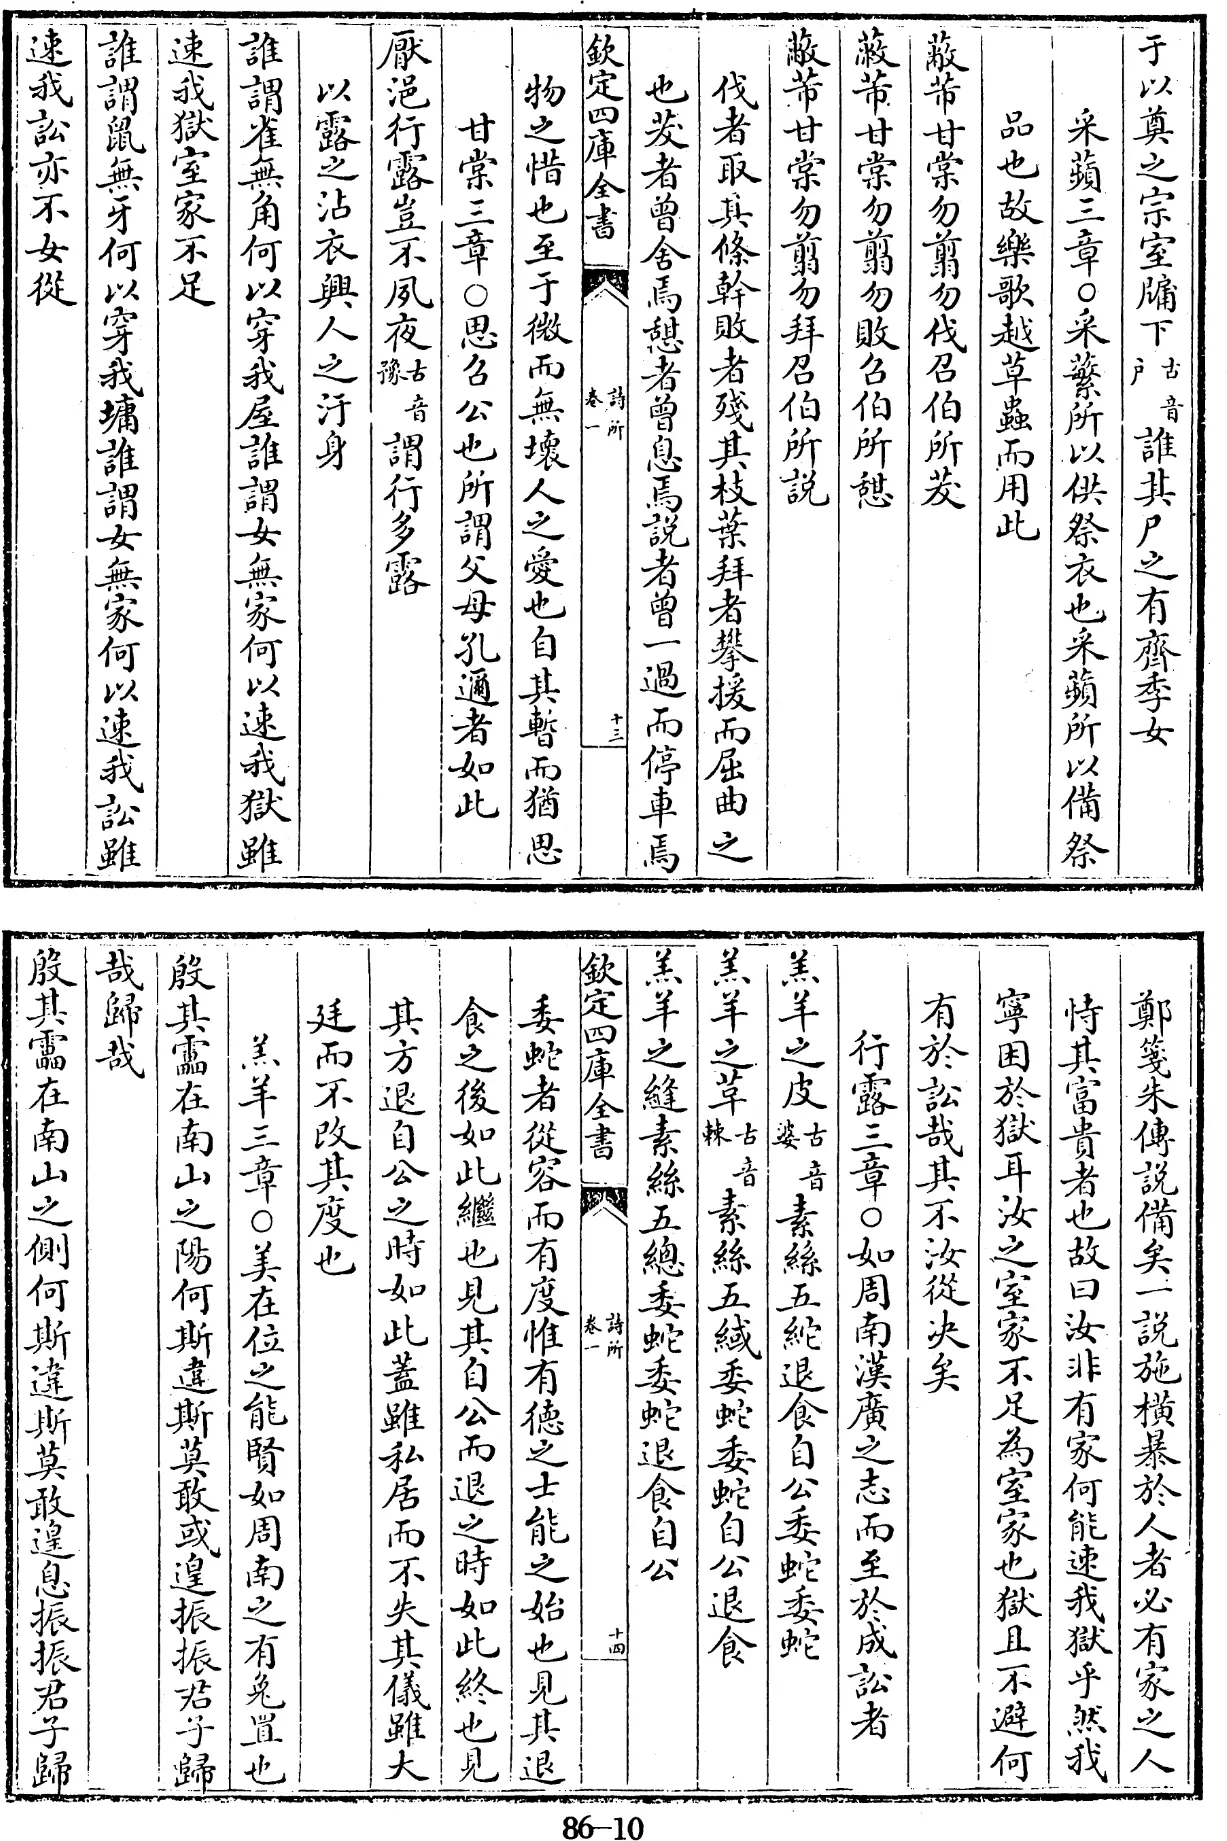 于以奠之宗室牖下古音户誰其尸之有齊季女
采蘋三章○采蘩所以供祭衣也采蘋所以備祭
品也故樂歌越草蟲而用此
蔽芾甘棠勿翦勿伐召伯所茇
蔽芾甘棠勿翦勿敗召伯所憩
蔽芾甘棠勿翦勿拜召伯所説
伐者取其條幹敗者殘其枝葉拜者攀援而屈曲之
也茇者曾舍焉憩者曾息焉説者曾一過而停車焉
欽定四庫全書 詩所 卷一 十三
物之惜也至于微而無壞人之愛也自其暫而猶思
甘棠三章○思召公也所謂父母孔邇者如此
厭浥行露豈不夙夜古音豫謂行多露
以露之沾衣興人之汙身
誰謂雀無角何以穿我屋誰謂女無家何以速我獄雖
速我獄室家不足
誰謂鼠無牙何以穿我墉誰謂女無家何以速我訟雖
速我訟亦不女從
鄭箋朱傳説備矣一説施横暴於人者必有家之人
恃其富貴者也故曰汝非有家何能速我獄乎然我
寧困於獄耳汝之室家不足為室家也獄且不避何
有於訟哉其不汝從決矣
行露三章○如周南漢廣之志而至於成訟者
羔羊之皮古音婆素絲五紽退食自公委蛇委蛇
羔羊之革古音棘素絲五緎委蛇委蛇自公退食
羔羊之縫素絲五總委蛇委蛇退食自公
欽定四庫全書 詩所 卷一 十四
委蛇者從容而有度惟有德之士能之始也見其退
食之後如此繼也見其自公而退之時如此終也見
其方退自公之時如此蓋雖私居而不失其儀雖大
廷而不改其度也
羔羊三章○美在位之能賢如周南之有兔罝也
殷其靁在南山之陽何斯違斯莫敢或遑振振君子歸
哉歸哉
殷其靁在南山之側何斯違斯莫敢遑息振振君子歸
86-10